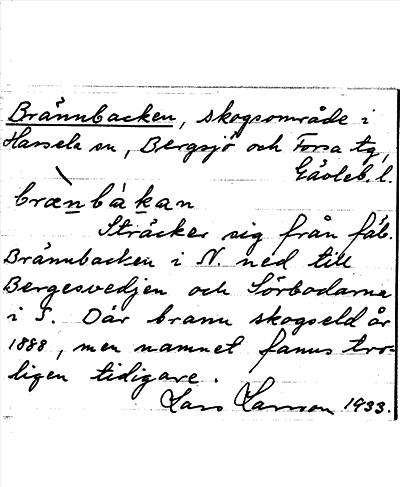 Brännbacken, skogsområde i
Hassela sn, Bergsjö och Forsa tg,
Gävleb. l.
bræ̀nbákan
Sträcker sig från fäb.
Brännbacken i N. ned till
Bergesvedjen och Sörbodarna
i S. Där brann skogseld år
1888, men namnet fanns tro-
ligen tidigare.
Lars Larsson 1933.